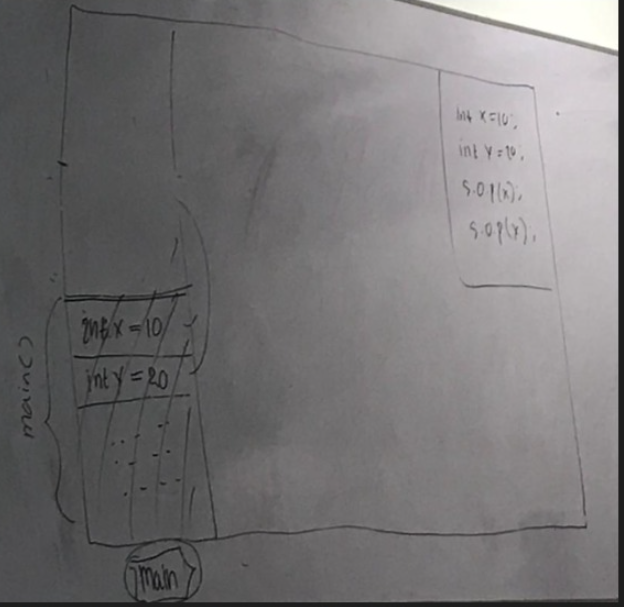 int x=10;
int y=20;
S.O.P(x);
S.O.P(y);
int x = 10
int y = 20
main()
main